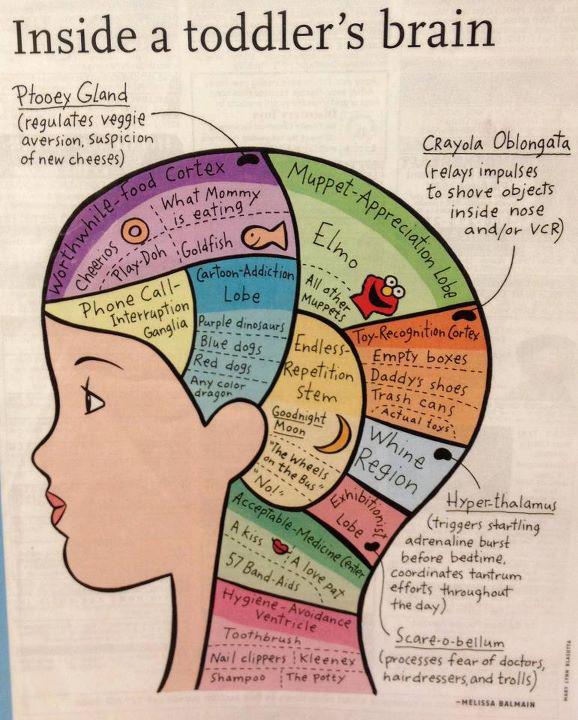 Inside a toddler's brain
Ptooey Gland
(regulates veggie
aversion, suspicion
of new cheeses)
Crayola Oblongata
(relays impulses
to shove objects
inside nose
and/or VCR)
Worthwhile-Food Cortex
What Mommy
is eating
Cheerios
Play-Doh
Goldfish
Muppet-Appreciation Lobe
Elmo
All other
Muppets
Phone Call-
Interruption
Ganglia
Cartoon-Addiction
Lobe
Purple dinosaurs
Blue dogs
Red dogs
Any color
dragon
Endless-
Repetition
Stem
Goodnight
Moon
"The Wheels
on the Bus"
"No!"
Toy-Recognition Cortex
Empty boxes
Daddy's shoes
Trash cans
Actual toys
Whine
Region
Exhibitionist
Lobe
Hyper-thalamus
(triggers startling
adrenaline burst
before bedtime,
coordinates tantrum
efforts throughout
the day)
Acceptable-Medicine Center
A kiss
A love pat
57 Band-Aids
Hygiene-Avoidance
Ventricle
Toothbrush
Nail clippers Kleenex
Shampoo The potty
Scare-o-bellum
(processes fear of doctors,
hairdressers, and trolls)
—MELISSA BALMAIN